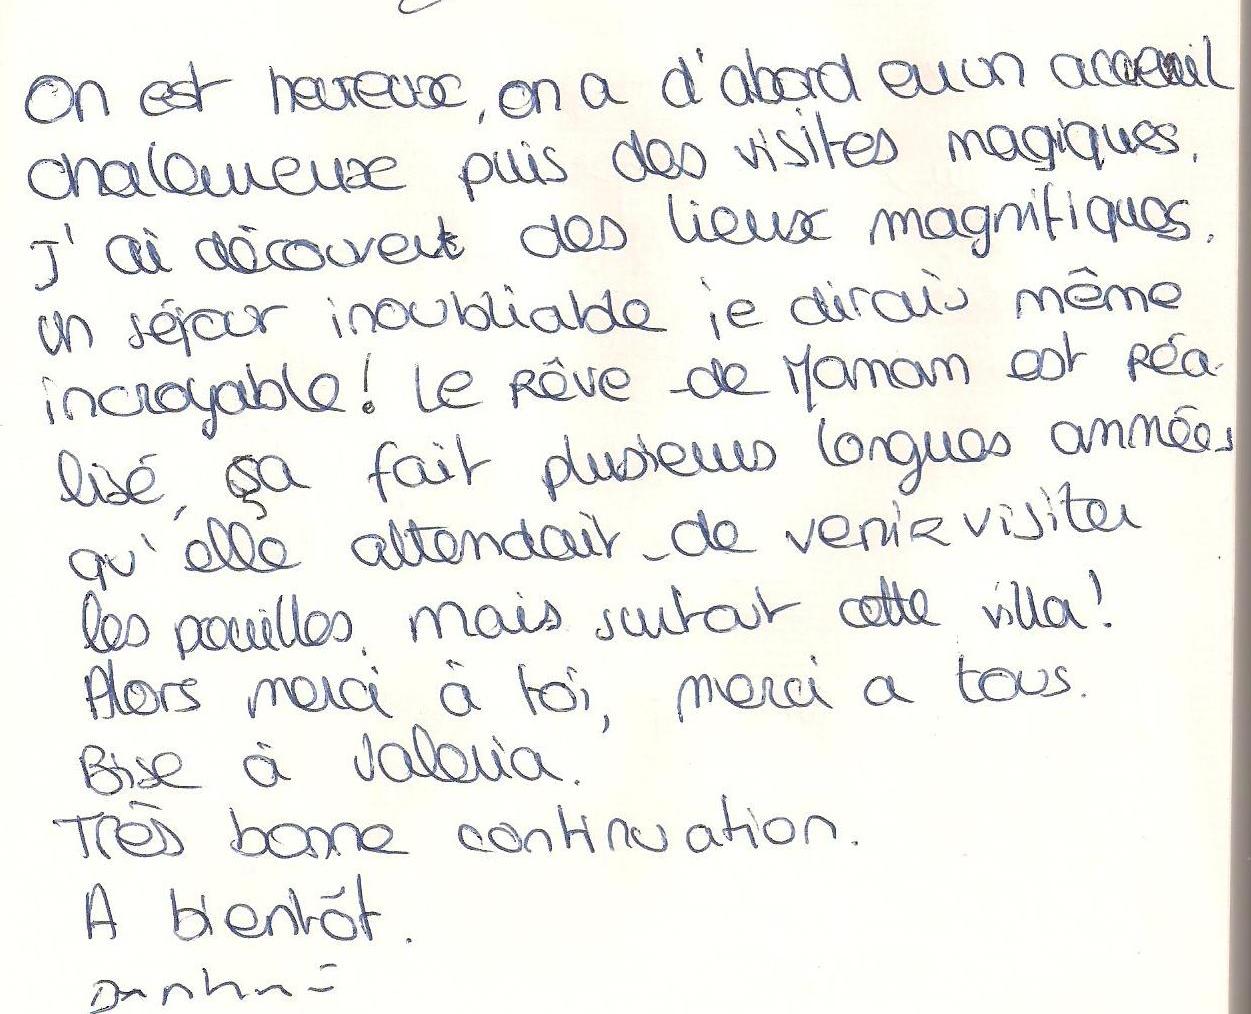 On est heureux, on a d'abord eu un accueil
chaleureux puis des visites magiques.
J'ai découvert des lieux magnifiques.
un séjour inoubliable je dirais même
incroyable! Le Rêve de Maman est réa-
lisé, ça fait plusieurs longues années
qu'elle attendait de venir visiter
les pouilles, mais surtout cette villa!
Alors merci à toi, merci a tous.
Bise à Valeria.
Très bonne continuation.
A bientôt.